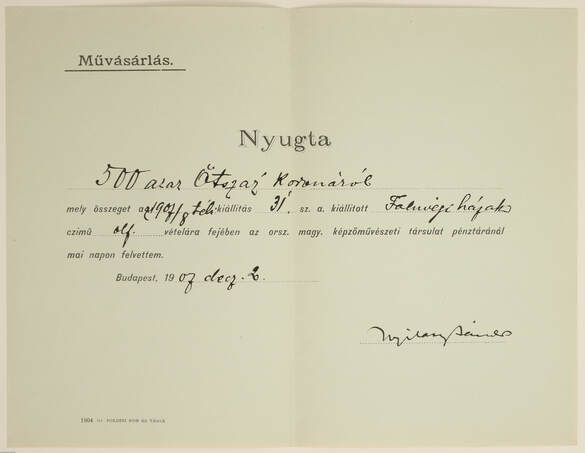 Művásárlás.
Nyugta
500 azaz Ötszáz Koronáról
mely összeget az 1907/8 téli kiállítás 31. sz. a. kiállított Faluvégi házak
czimű olf. vételára fejében az orsz. magy. képzőművészeti társulat pénztáránál
mai napon felvettem.
Budapest, 1907 decz. 2.
1904